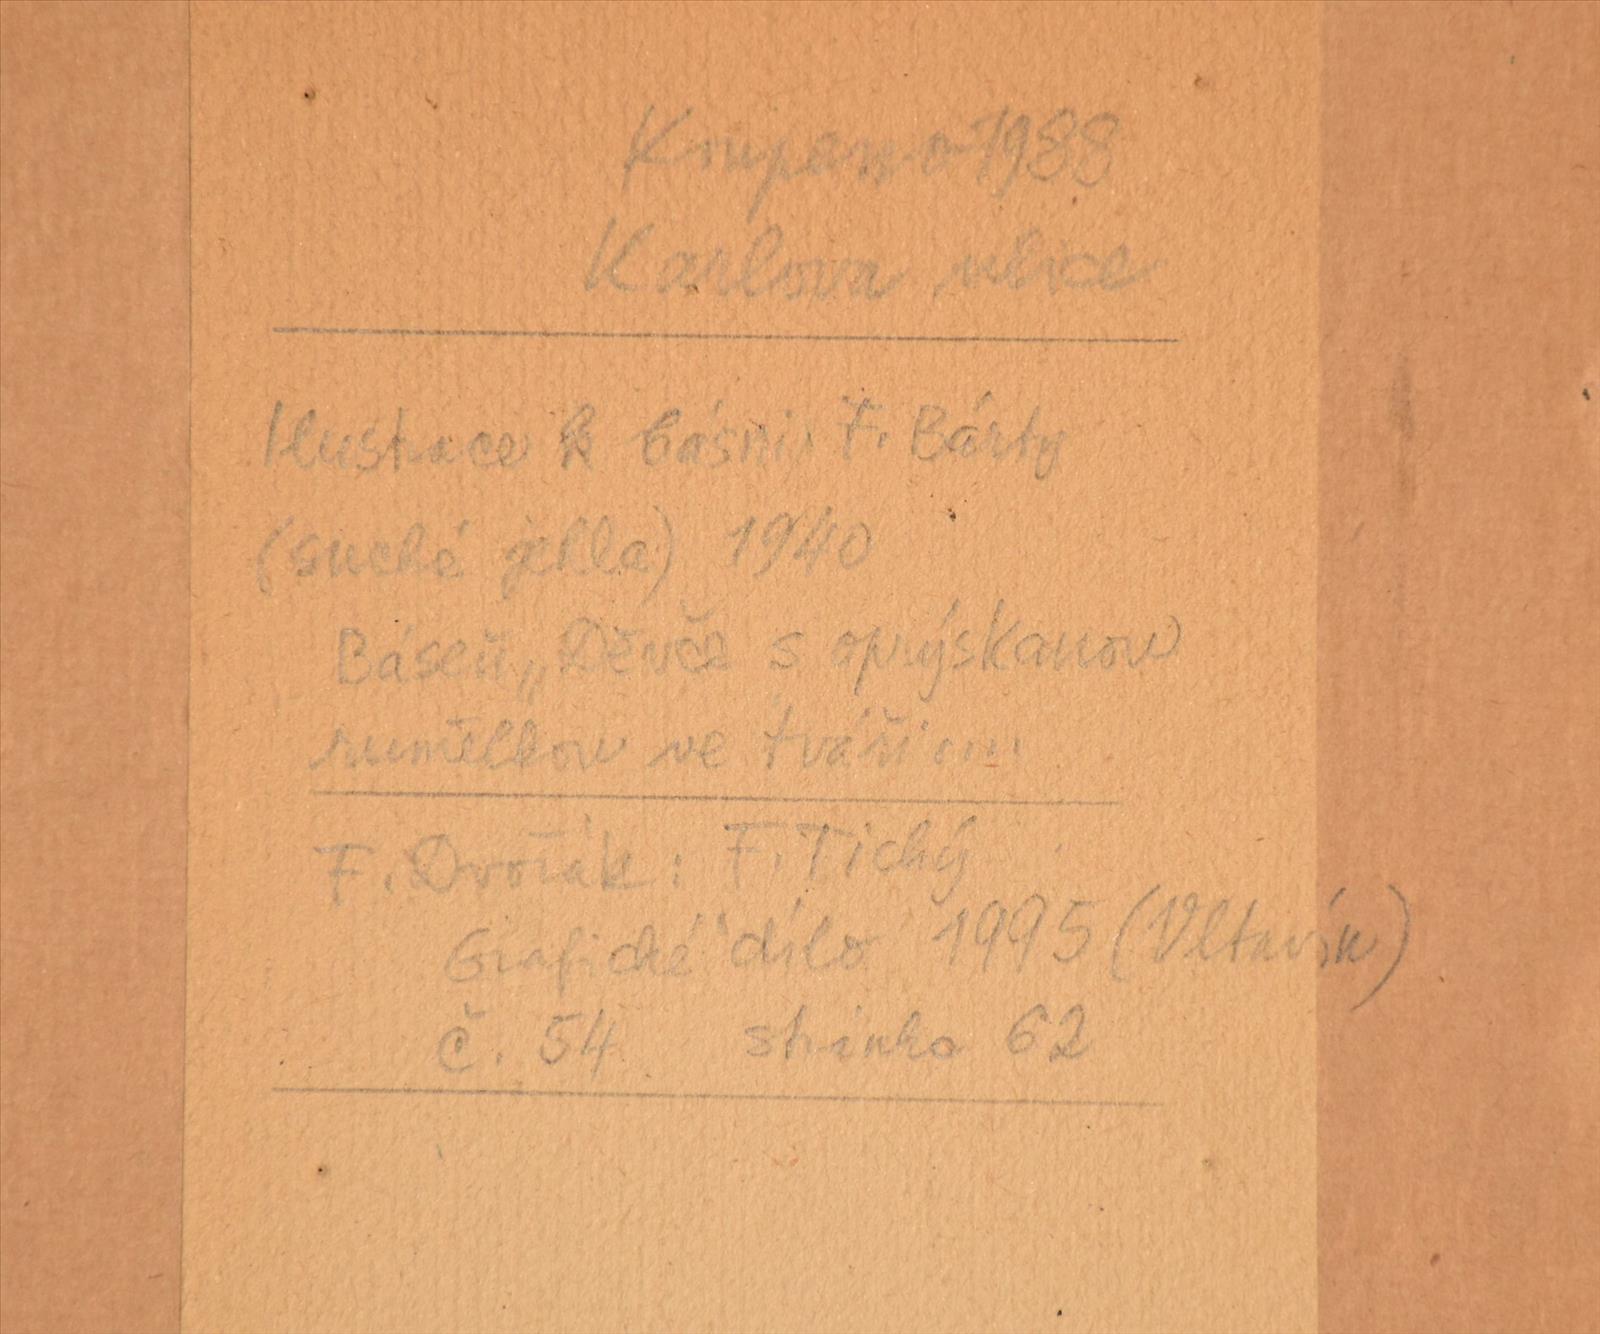 Koupeno 1988
Karlova ulice
Ilustrace k básni F. Bárty
(suchá jehla) 1940
Báseň „Děvče s oprýskanou
rumělkou ve tváři
F. Dvořák: F. Tichý
Grafické dílo 1995 (Vltavín)
č. 54 stránka 62